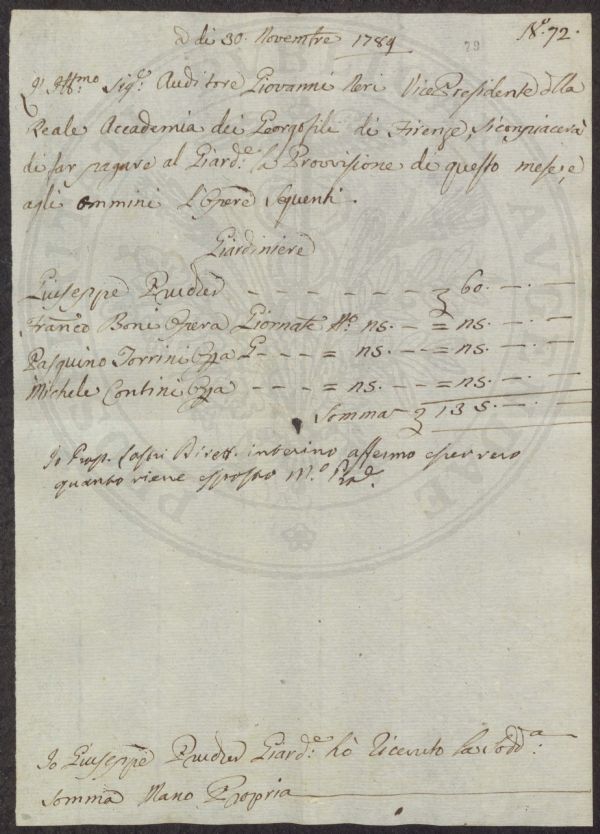 A di 30. Novembre 1789 79 N.º 72.
L' Ill.mo Sig.e Auditore Giovanni Neri Vice Presidente della
Reale Accademia dei Georgofili di Firenze, si conpiacerà
di far pagare al Giard.e la Provvisione di questo mese, e
agli ommini l'Opere seguenti.
Giardiniere
Giuseppe - - - - - - - 60. — . —
Franc.o Boni Opera Giornate N.o 25. - - = 25. — . —
Pasquino Torrini Opa G - - - = 25. - - = 25. — . —
Michele Contini Opa - - - - = 25. - - = 25. — . —
Somma 135. — . —
Io Prop. Lastri Dirett. interino affermo esser vero
quanto viene esposto M.o
Io Giuseppe Giard.e hò Ricevuto la Sodd.a
Somma Mano Propria